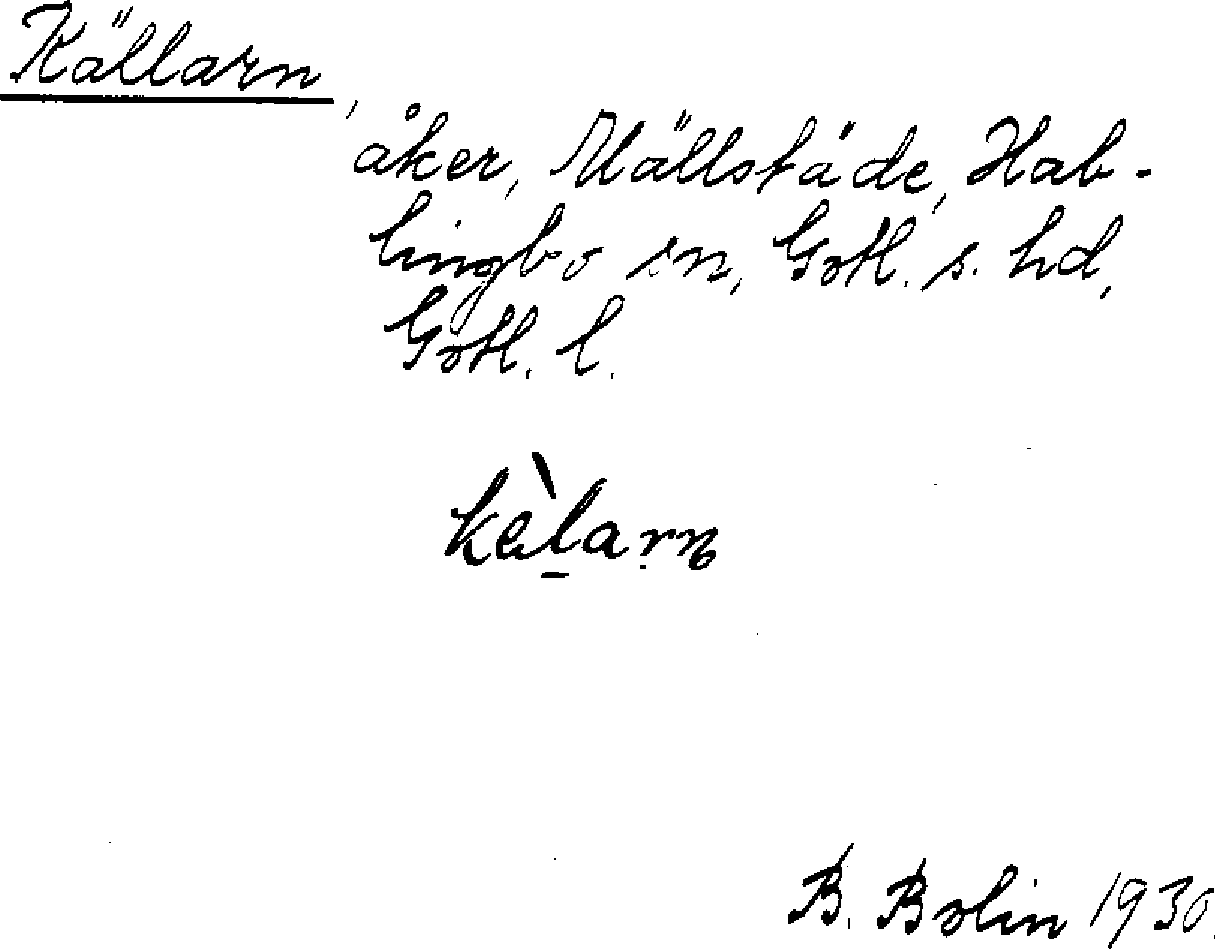 Källarn,
åker, Mällstäde, Hab-
lingbo sn, Gotl. s. hd,
Gotl. l.
kèlarn
B. Bolin 1930.